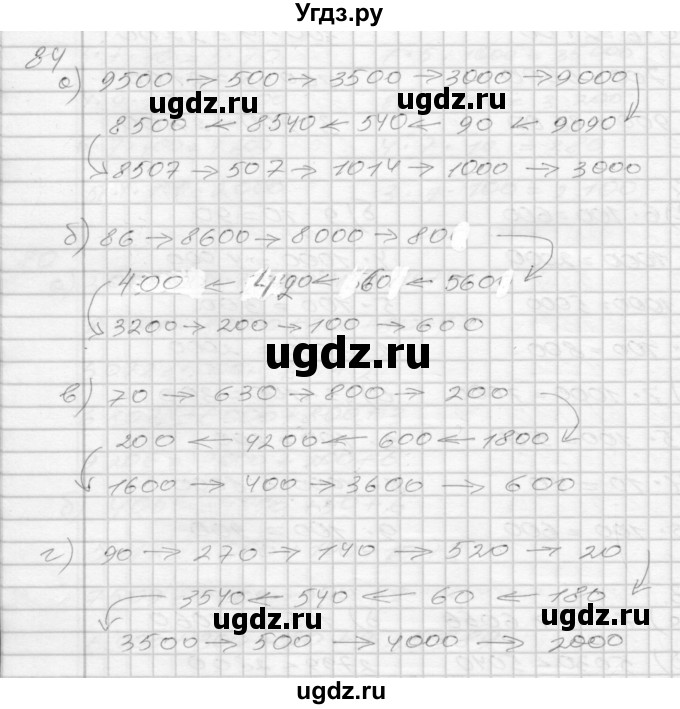 Угдз.ру
84
а) 9500 → 500 → 3500 → 3000 → 9000
ugdz.ru ugdz.ru
8500 ← 8540 ← 540 ← 90 ← 9090
8507 → 507 → 1014 → 1000 → 3000
б) 86 → 8600 → 8000 → 80
400 ← ← 60 ← 560
3200 → 200 → 100 → 600
ugdz.ru
в) 70 → 630 → 800 → 200
200 ← 9200 ← 600 ← 1800
1600 → 400 → 3600 → 600
г) 90 → 270 → 140 → 520 → 20
3540 ← 540 ← 60 ← 180
ugdz.ru ugdz.ru
3500 → 500 → 4000 → 2000
ugdz.ru